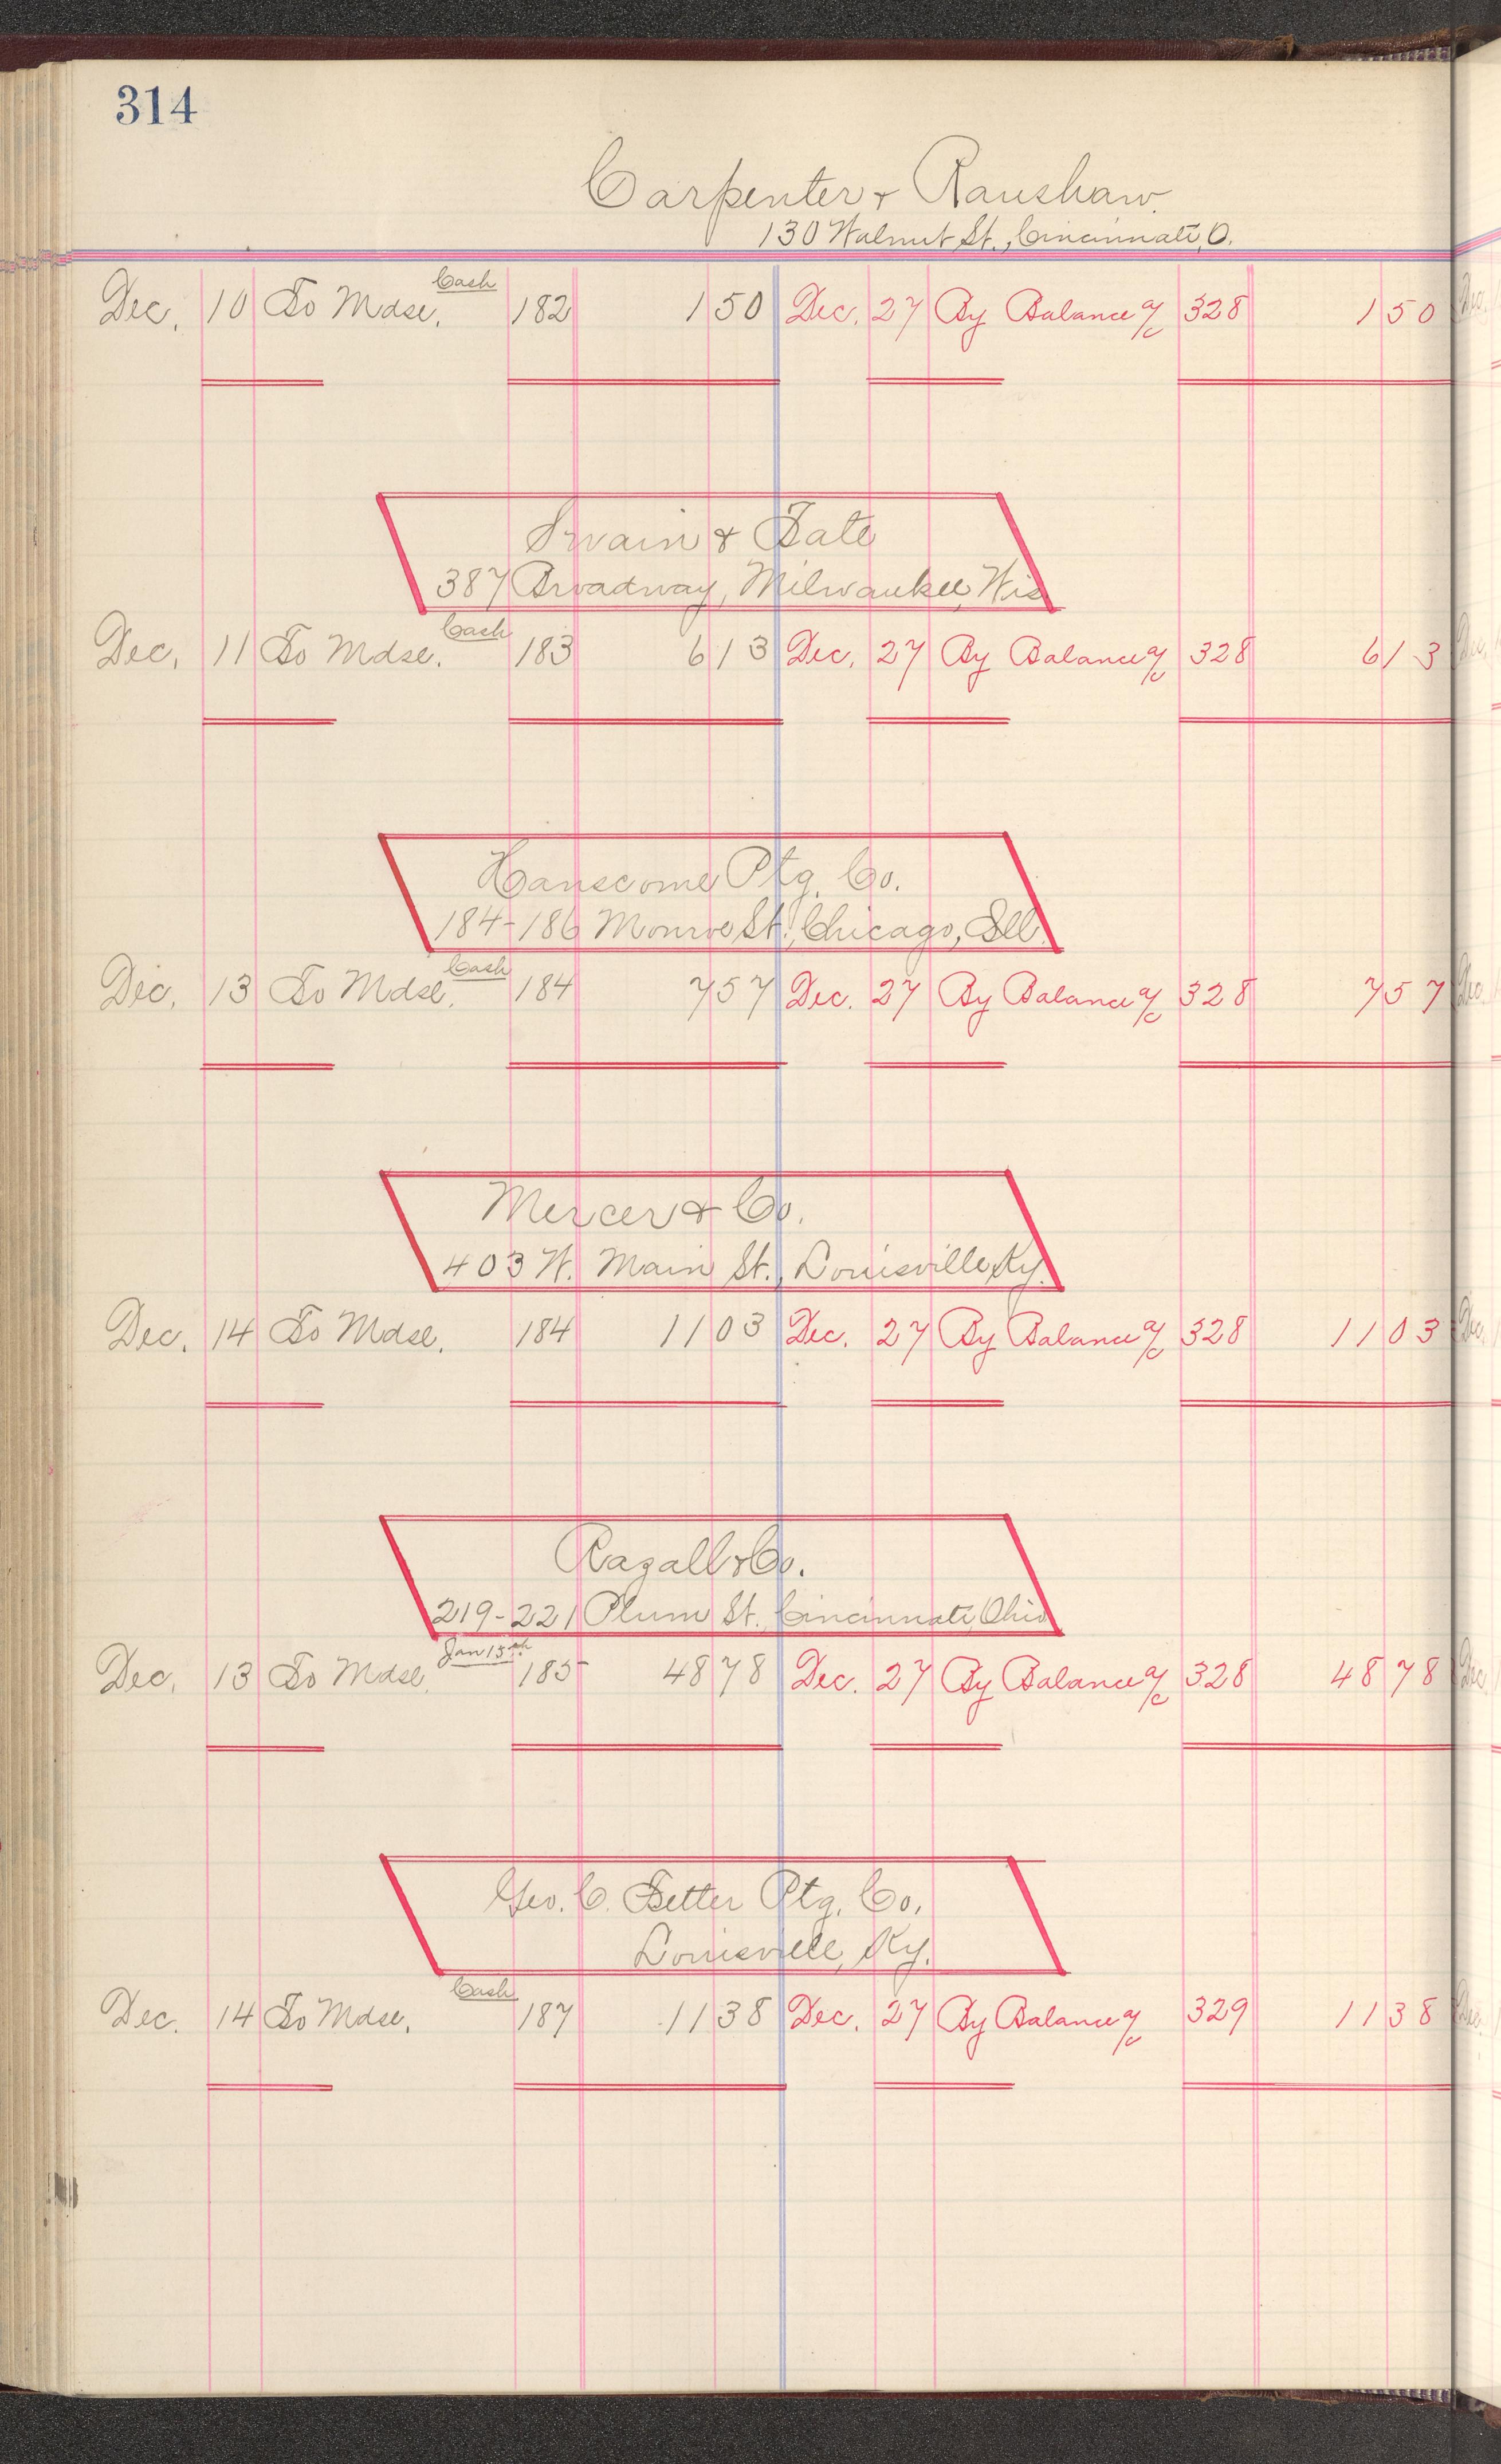 314
Carpenter & Ranshaw.
130 Walnut St., Cincinnati, O.
Cash
Dec. 10 To Mdse. 182 1 50 Dec. 27 By Balance a/c 328 1 50
Swain & Tate
387 Broadway, Milwaukee, Wis.
Cash
Dec. 11 To Mdse. 183 6 13 Dec. 27 By Balance a/c 328 6 13
Hanscome Ptg. Co.
184-186 Monroe St., Chicago, Ill.
Cash
Dec. 13 To Mdse. 184 7 57 Dec. 27 By Balance a/c 328 7 57
Mercer & Co.
403 W. Main St., Louisville, Ky.
Dec. 14 To Mdse. 184 11 03 Dec. 27 By Balance a/c 328 11 03
Razall & Co.
219-221 Plum St., Cincinnati, Ohio
Jan 15th
Dec. 13 To Mdse. 185 48 78 Dec. 27 By Balance a/c 328 48 78
Geo. C. Fetter Ptg. Co.,
Louisville, Ky.
Cash
Dec. 14 To Mdse. 187 11 38 Dec. 27 By Balance a/c 329 11 38